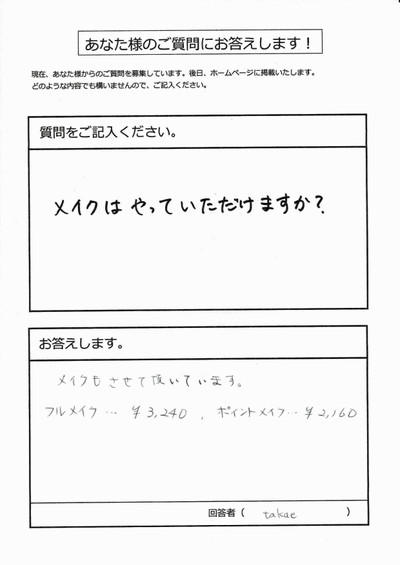 あなた様のご質問にお答えします！
現在、あなた様からのご質問を募集しています。後日、ホームページに掲載いたします。
どのような内容でも構いませんので、ご記入ください。
質問をご記入ください。
メイクはやっていただけますか？
お答えします。
メイクもさせて頂いています。
フルメイク… ¥3,240 、ポイントメイク… ¥2,160
回答者（ takae ）